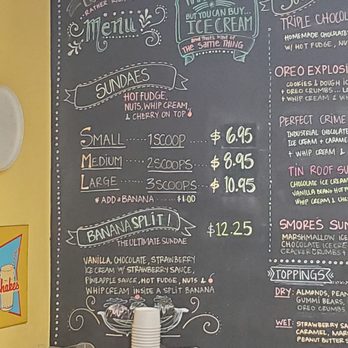 RATHER
Menu
BUT YOU CAN BUY...
ICE CREAM
THE SAME THING
SUNDAES
HOT FUDGE,
NUTS, WHIP CREAM,
& CHERRY ON TOP
SMALL 1 SCOOP $6.95
MEDIUM 2 SCOOPS $8.95
LARGE 3 SCOOPS $10.95
*ADD A BANANA $1.00
BANANA SPLIT! $12.25
THE ULTIMATE SUNDAE
VANILLA, CHOCOLATE, STRAWBERRY
ICE CREAM W/ STRAWBERRY SAUCE,
PINEAPPLE SAUCE, HOT FUDGE, NUTS &
WHIP CREAM INSIDE A SPLIT BANANA
TRIPLE CHOCOL
HOMEMADE CHOCOLATE
W/ HOT FUDGE, NU
OREO EXPLOSI
COOKIES & DOUGH IC
+ OREO CRUMBS... L
+ WHIP CREAM &
PERFECT CRIME
INDUSTRIAL CHOCOLATE
ICE CREAM + CARAME
+ WHIP CREAM &
TIN ROOF SU
CHOCOLATE ICE CREA
VANILLA BEAN, HOT F
WHIP CREAM & CHE
SMORES SUN
MARSHMALLOW IC
CHOCOLATE ICE CRE
TOPPINGS
DRY: ALMONDS, PEAN
GUMMI BEARS,
OREO CRUMBS
WET: STRAWBERRY SA
CARAMEL, MAR
PEANUT BUTTER